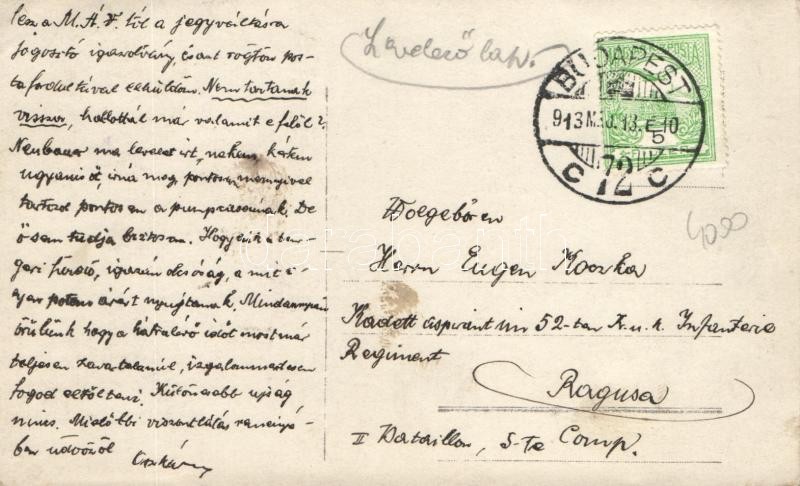 lesz a M.Á.V. tól a jegyváltásra
jogosító igazolvány, és azt rögtön pos-
ta fordultával elküldöm. Nem tartanak
vissza, hallottál már valamit e felől?
Neubauer ma levelet írt, nekem kérem
ugyanis őt, írná meg pontosan mennyivel
tartozol pontosan a
ő sem tudja biztosan. Hogy
igazán olcsóság, a mit
árát nyujtanak. Mindannyian
örülünk hogy a hátralévő időt most már
teljesen zavartalanul, izgalommentesen
fogod eltölteni. Különösebb ujság
nincs. Mielőbbi viszontlátás reményé-
ben üdvözöl
Levelező lap.
BUDAPEST
72
Wolgebóren
Herrn Eugen Koczka
Kadett aspirant im 52-ten K.u.k. Infanterie
Regiment
Ragusa
II Bataillon, 5-te Comp.
4000